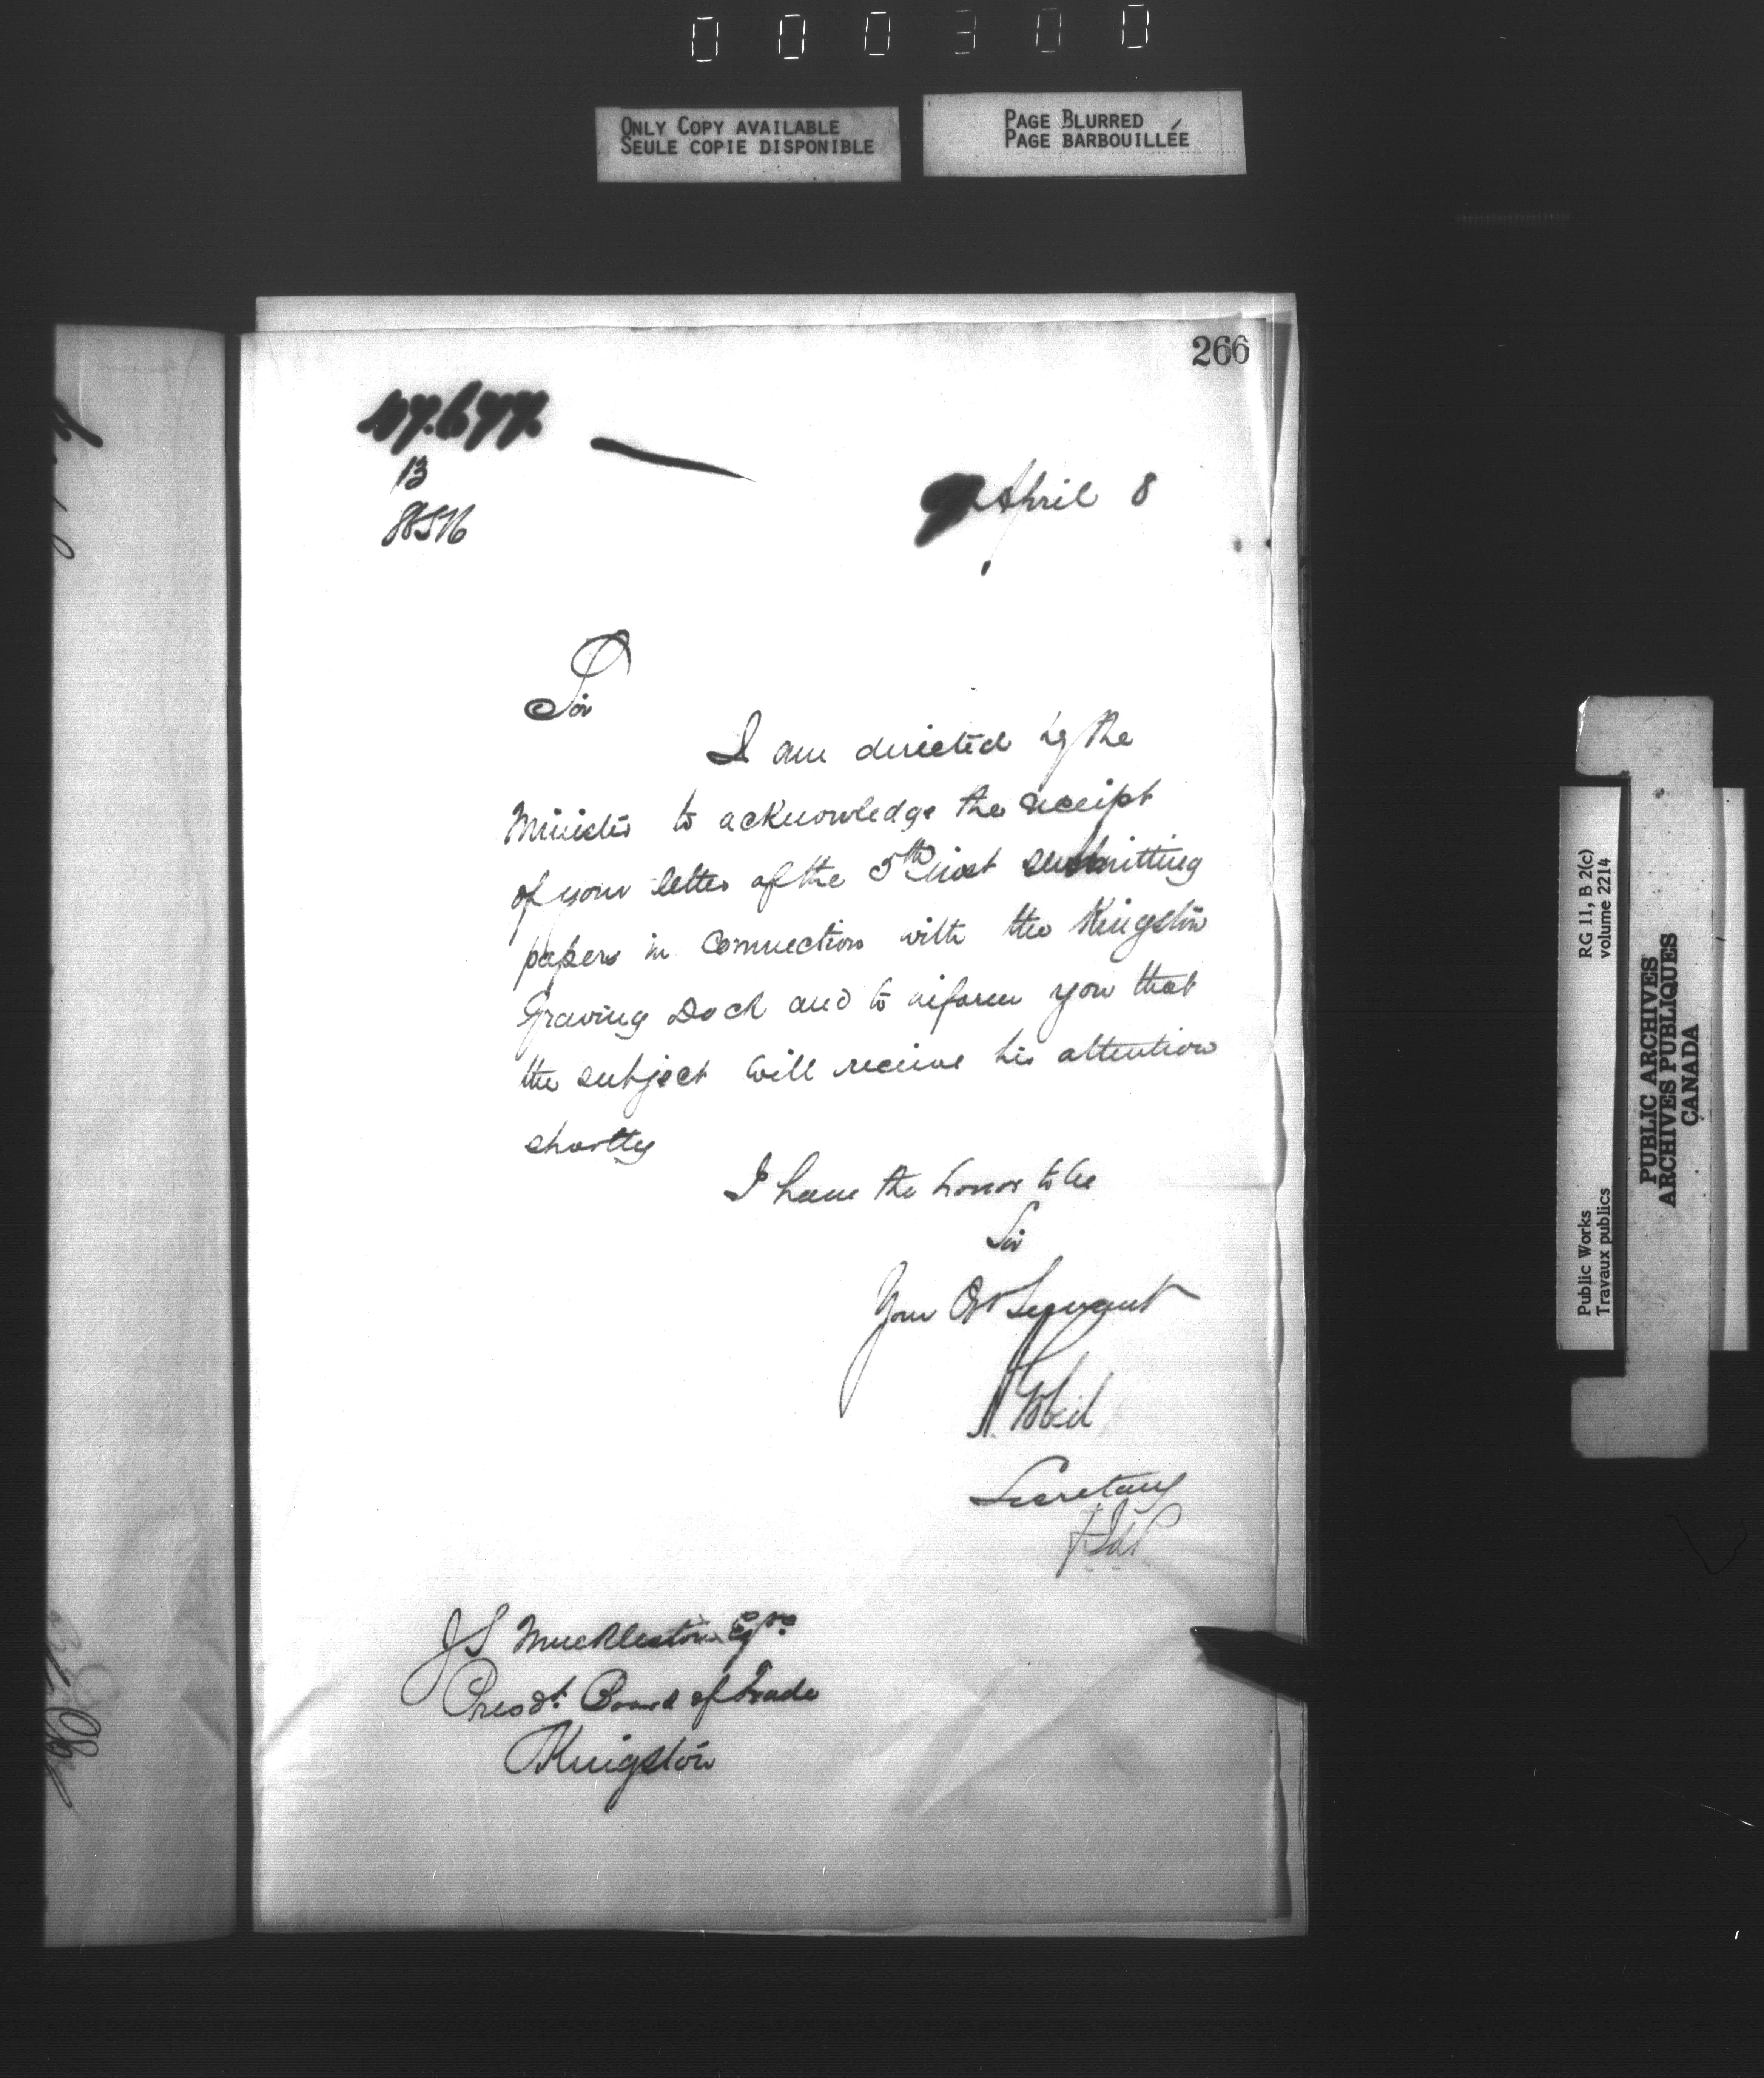 000300
ONLY COPY AVAILABLE
SEULE COPIE DISPONIBLE
PAGE BLURRED
PAGE BARBOUILLÉE
266
13
April 8
Sir
I am directed by the
Minister to acknowledge the receipt
of your letter of the 5th inst submitting
papers in connection with the Kingston
Graving Dock and to inform you that
the subject will receive his attention
shortly
I have the honor to be
Sir
Your Obt Servant
A Gobeil
Secretary
J S Muckleston Esqre
Presdt. Board of Trade
Kingston
RG 11, B 2(c)
volume 2214
Public Works
Travaux publics
PUBLIC ARCHIVES
ARCHIVES PUBLIQUES
CANADA